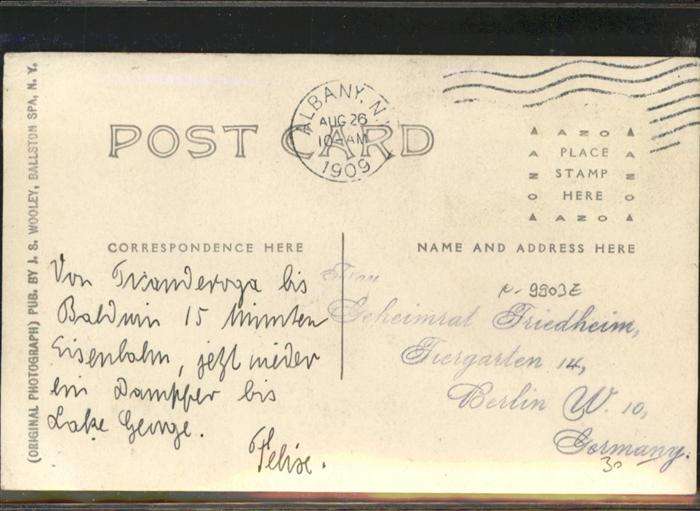 (ORIGINAL PHOTOGRAPH) PUB. BY J. S. WOOLEY, BALLSTON SPA, N. Y.
POST CARD
ALBANY, N.
AUG 26
10-AM
1909
AZO
PLACE
STAMP
HERE
AZO
CORRESPONDENCE HERE
NAME AND ADDRESS HERE
Von Ticanderoga bis
Baldwin 15 Minuten
Eisenbahn, jetzt wieder
ein Dampfer bis
Lake George.
Felix.
N-9903E
Frau
Geheimrat Friedheim,
Tiergarten 14,
Berlin W. 10,
Germany.
30